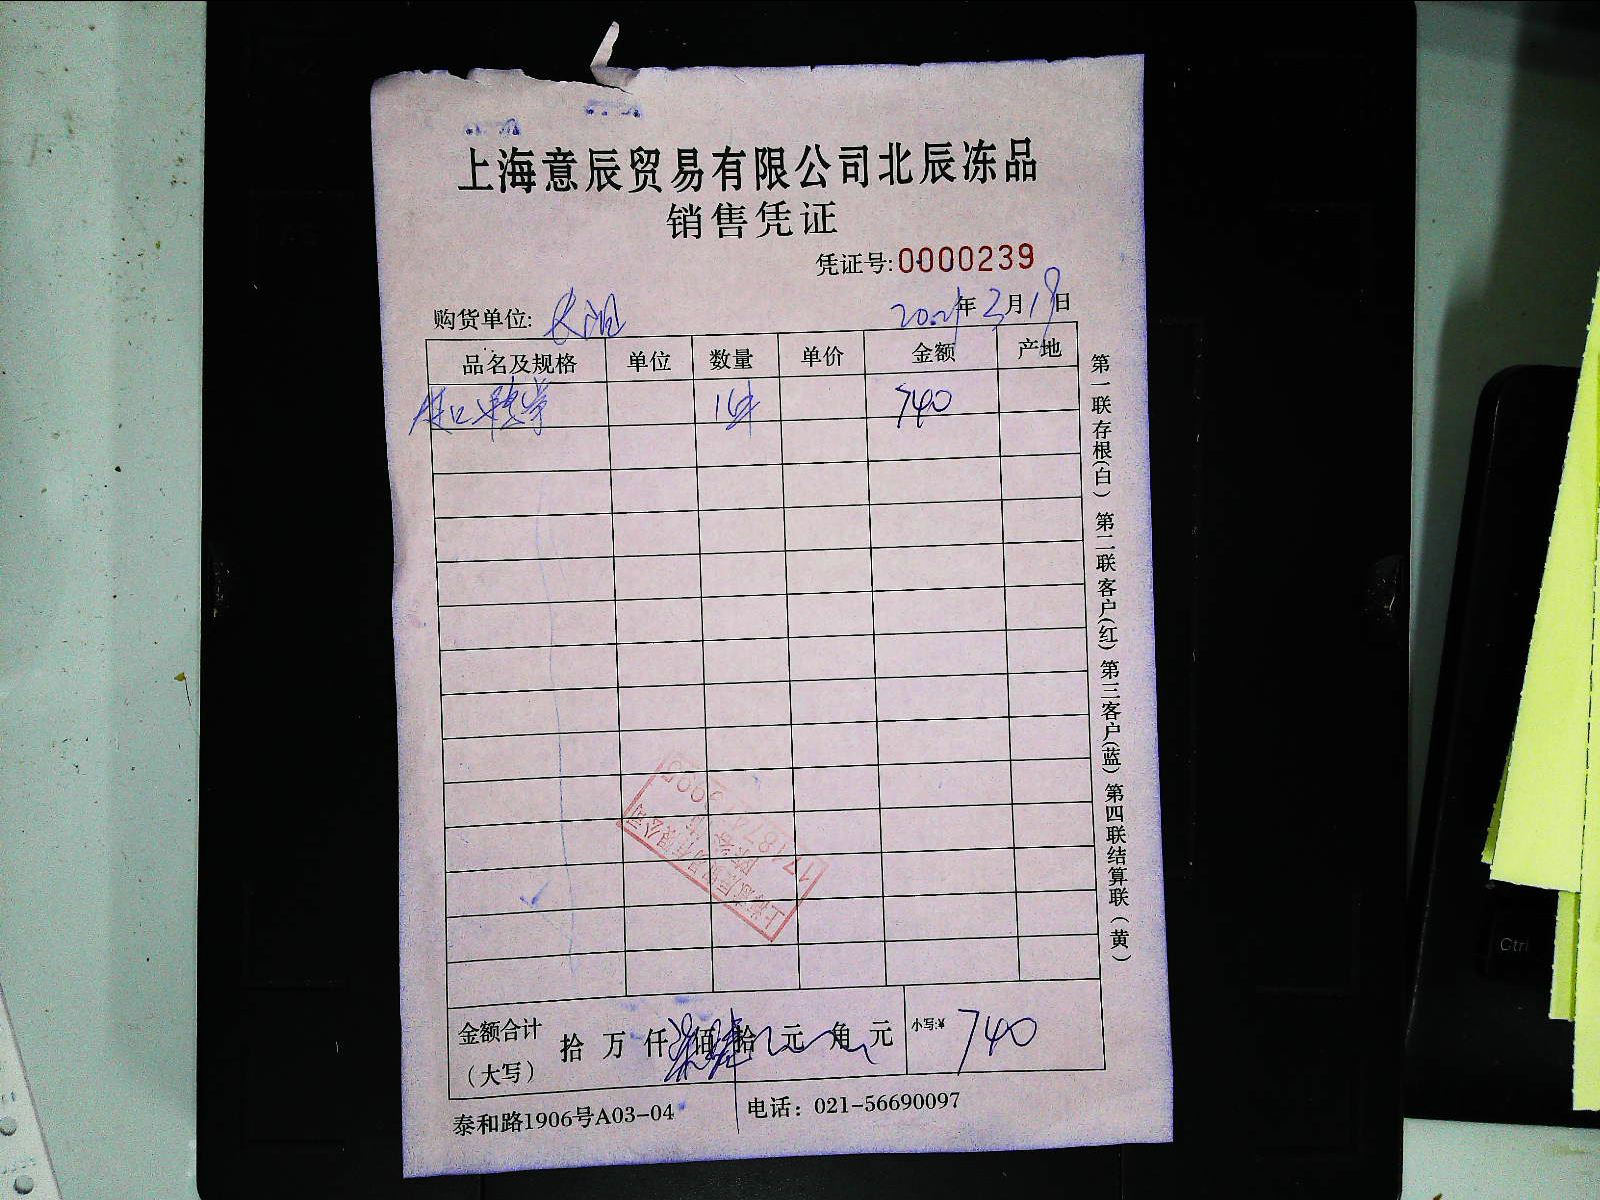 上海意辰贸易有限公司北辰冻品
销售凭证
凭证号:0000239
购货单位: 年3月19日
品名及规格 单位 数量 单价 金额 产地
740
金额合计(大写) 拾 万 仟 佰 拾 元 角 元 小写:¥ 740
泰和路1906号A03-04 电话：021-56690097
第一联存根(白) 第二联客户(红) 第三客户(蓝) 第四联结算联(黄)
上海意辰贸易有限公司
Ctrl